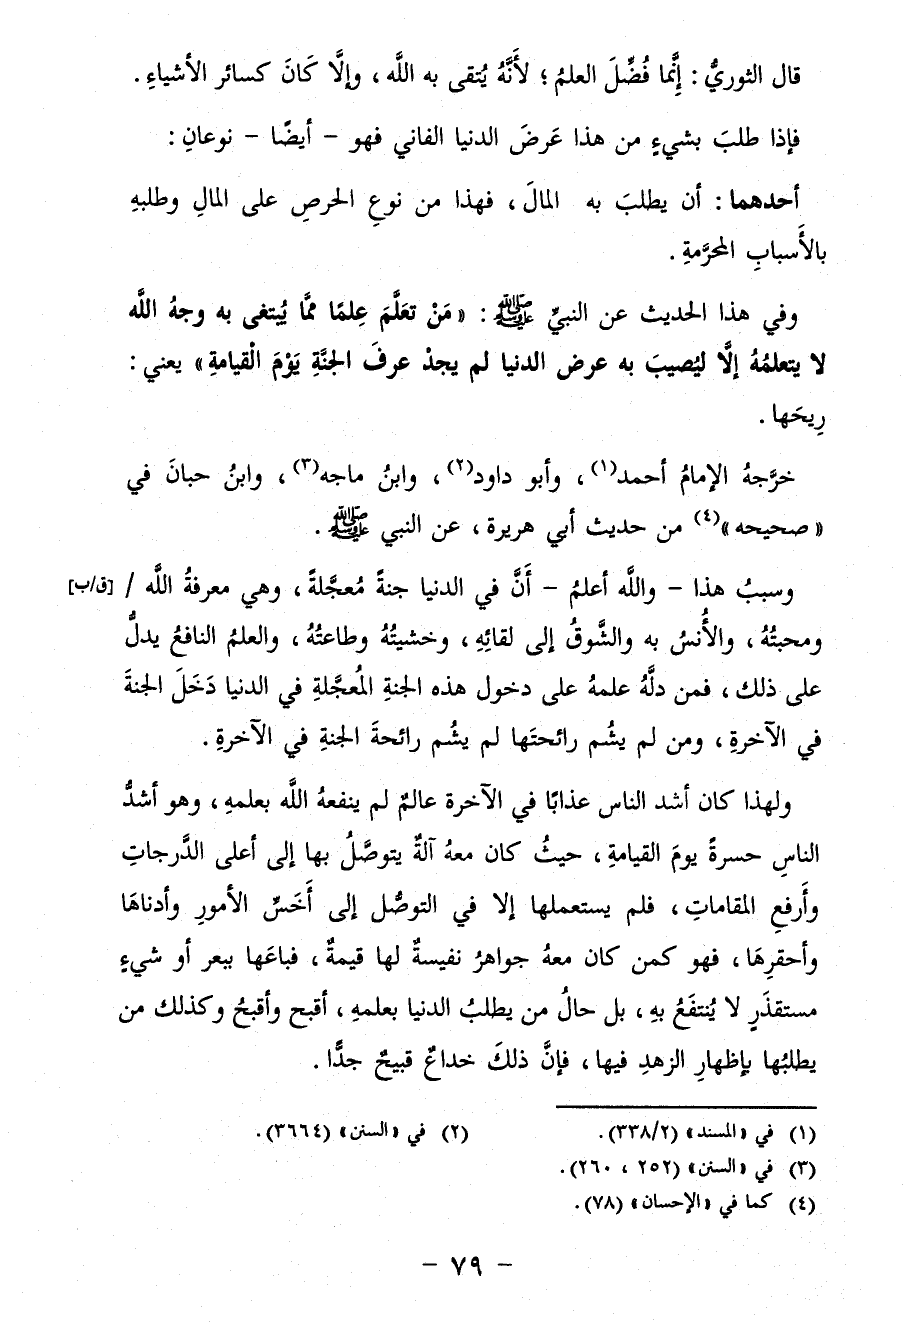 قال الثوريُّ : إِنَّما فُضِّلَ العلمُ ؛ لأَنَّهُ يُتقى به اللَّه ، وإلَّا كَانَ كسائر الأشياءِ .
فإذا طلبَ بشيءٍ من هذا عَرضَ الدنيا الفاني فهو – أيضًا – نوعانِ :
أحدهما : أن يطلبَ به المالَ ، فهذا من نوعِ الحرصِ على المالِ وطلبهِ
بالأَسبابِ المحرَّمةِ .
وفي هذا الحديث عن النبيِّ ﷺ : « مَنْ تعَلَّمَ عِلمًا ممَّا يُبتغى به وجهُ اللَّه
لا يتعلمُهُ إلَّا ليُصيبَ به عرض الدنيا لم يجدْ عرفَ الجنَّةِ يَوْمَ الْقيامةِ » يعني :
رِيحَها .
خرَّجهُ الإمامُ أحمد(١) ، وأبو داود(٢) ، وابنُ ماجه(٣) ، وابنُ حبانَ في
« صحيحه »(٤) من حديث أبي هريرة ، عن النبي ﷺ .
وسببُ هذا – واللَّه أعلمُ – أَنَّ في الدنيا جنةً مُعجَّلةً ، وهي معرفةُ اللَّه / [ق/ب]
ومحبتُهُ ، والأُنسُ به والشَّوقُ إلى لقائِهِ ، وخشيتُهُ وطاعتُهُ ، والعلمُ النافعُ يدلُّ
على ذلك ، فمن دلَّهُ علمهُ على دخول هذه الجنةِ المُعجَّلةِ في الدنيا دَخَلَ الجنةَ
في الآخرةِ ، ومن لم يشُم رائحتَها لم يشُم رائحةَ الجنةِ في الآخرةِ .
ولهذا كان أشد الناس عذابًا في الآخرة عالمٌ لم ينفعهُ اللَّه بعلمهِ ، وهو أشدُّ
الناسِ حسرةً يومَ القيامةِ ، حيثُ كان معهُ آلةٌ يتوصَّلُ بها إلى أعلى الدَّرجاتِ
وأَرفعِ المقاماتِ ، فلم يستعملها إلا في التوصُّل إلى أَخَسِّ الأمورِ وأدناهَا
وأحقرِهَا ، فهو كمن كان معهُ جواهرُ نفيسةٌ لها قيمةٌ ، فباعَها ببعر أو شيءٍ
مستقذَرٍ لا يُنتفَعُ بهِ ، بل حالُ من يطلبُ الدنيا بعلمهِ ، أقبح وأقبحُ وكذلك من
يطلبُها بإظهارِ الزهدِ فيها ، فإنَّ ذلكَ خداعٌ قبيحٌ جدًّا .
(١) في « المسند » (٣٣٨/٢). (٢) في « السنن » (٣٦٦٤).
(٣) في « السنن » (٢٥٢ ، ٢٦٠).
(٤) كما في « الإحسان » (٧٨).
– ٧٩ –